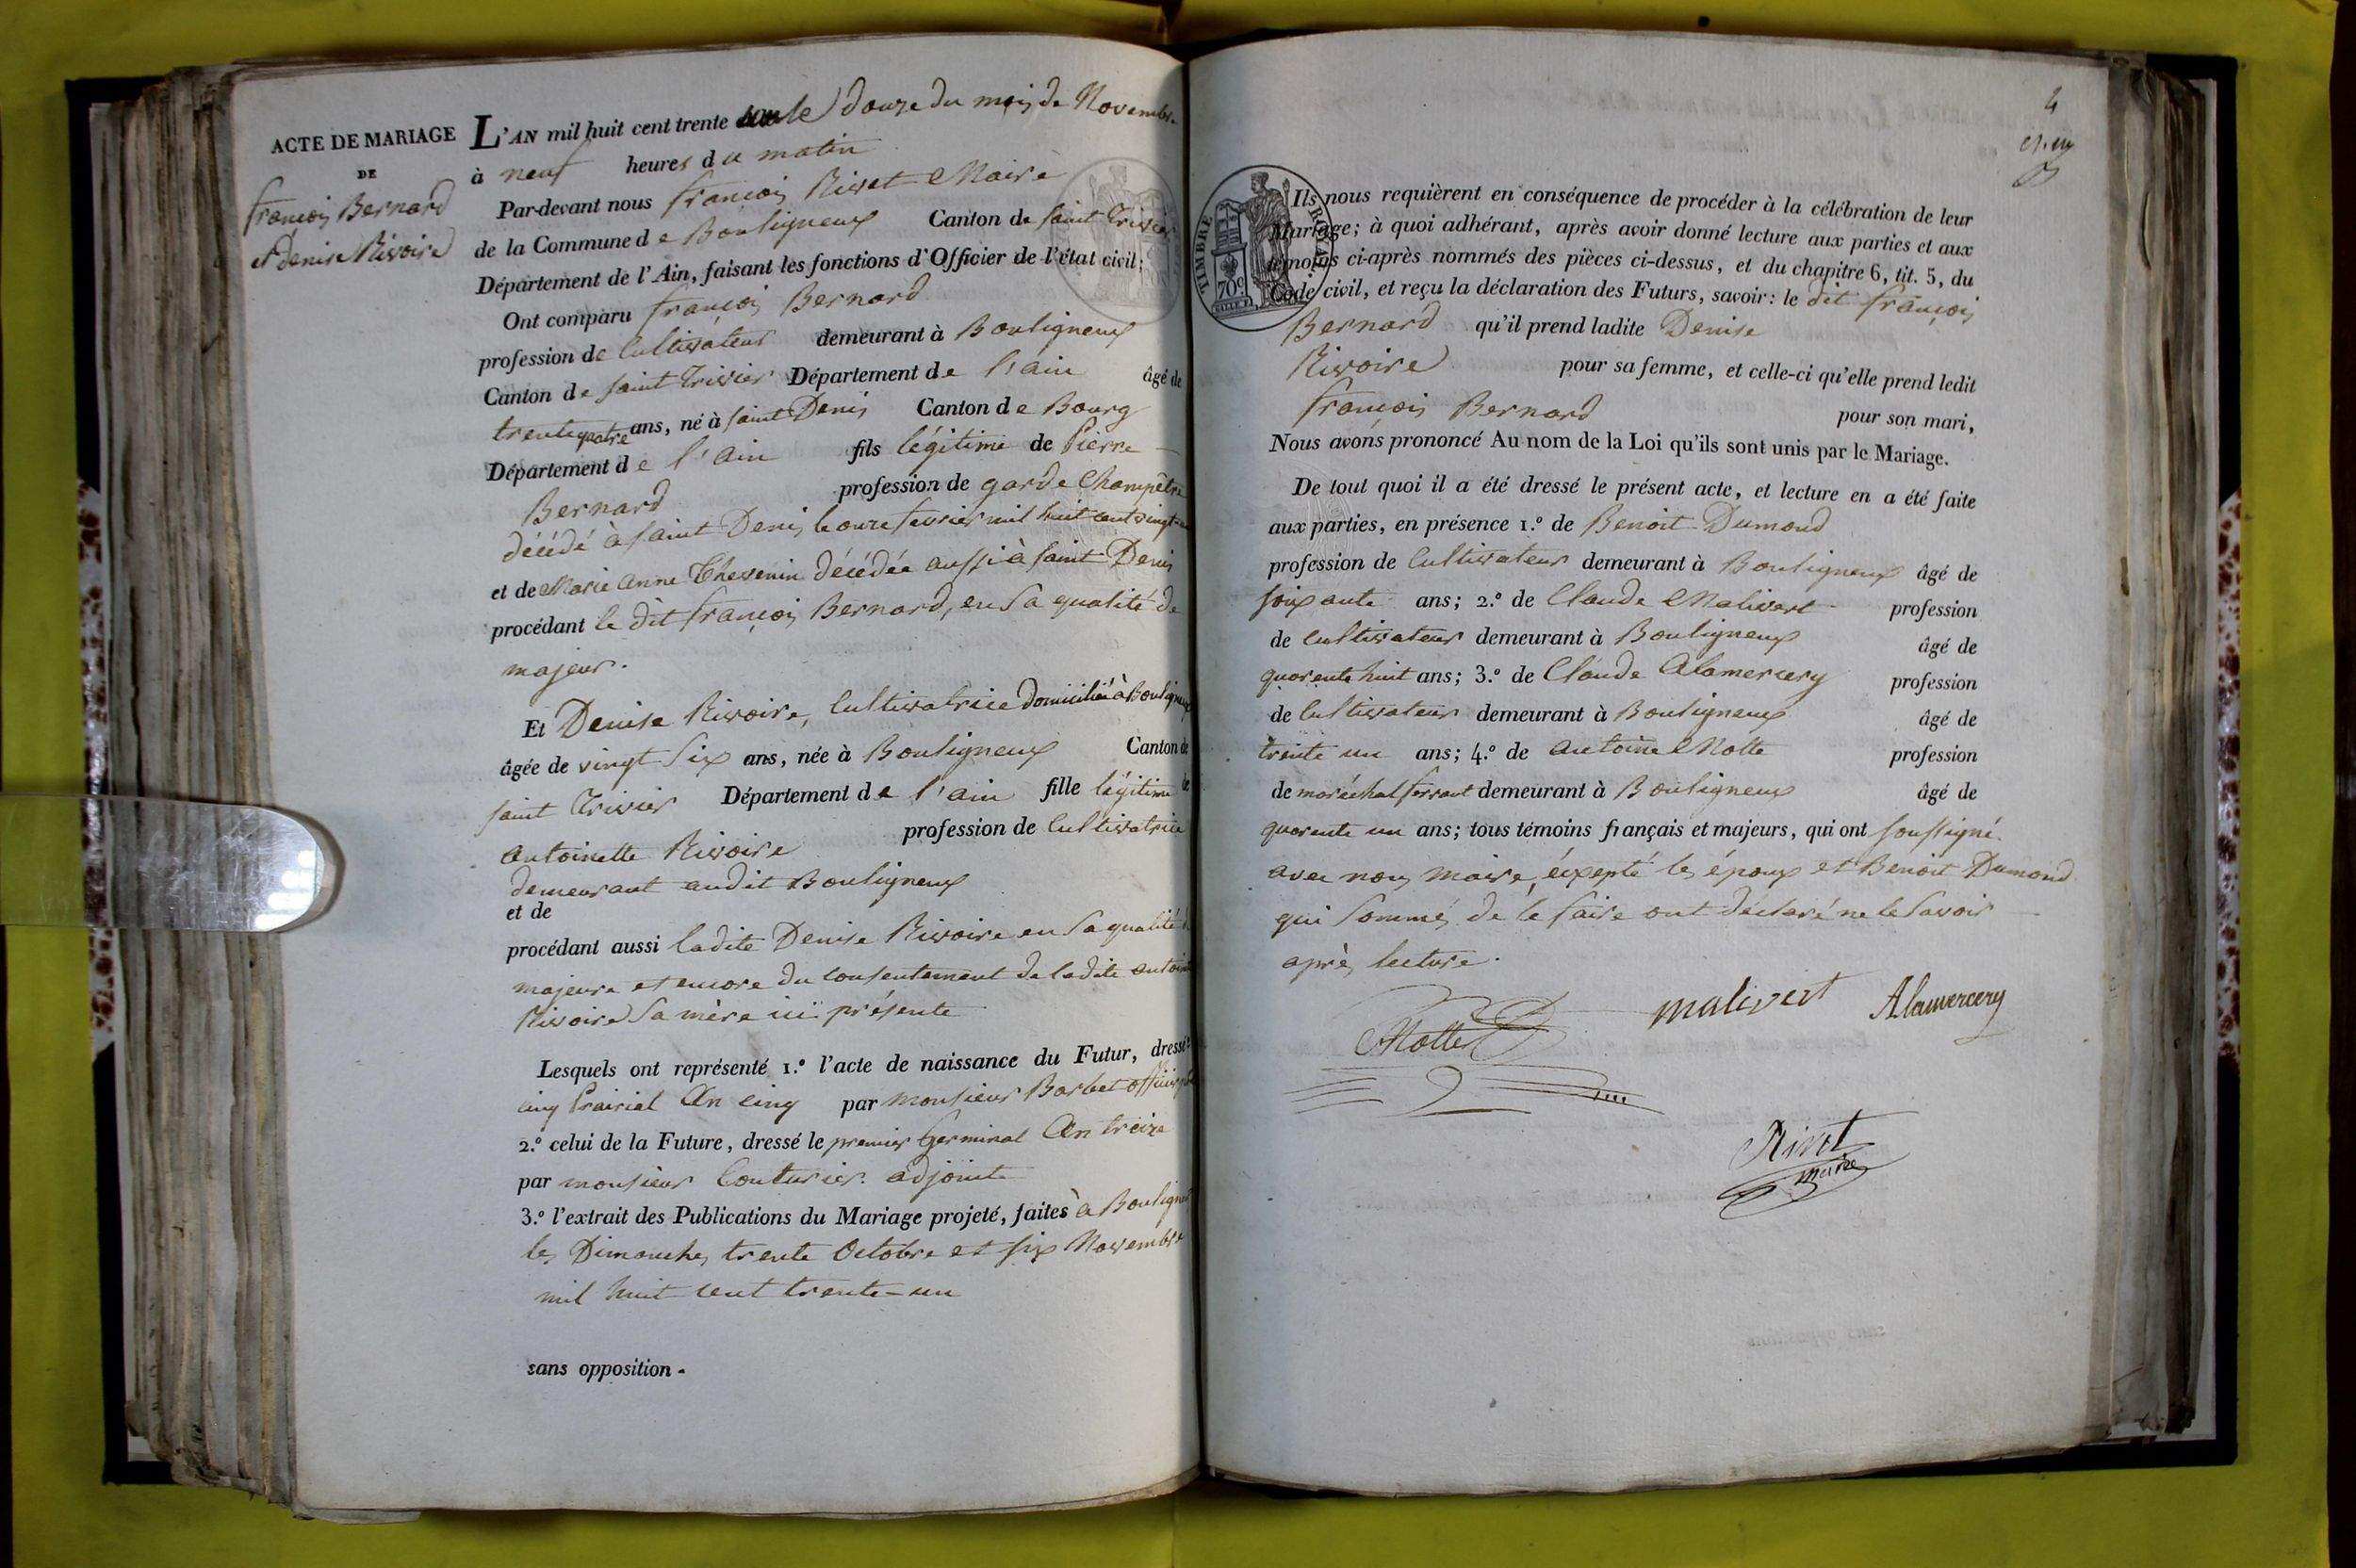 ACTE DE MARIAGE
DE
françois Bernard
et Denise Rivoire
L'AN mil huit cent trente un le douze du mois de Novembre
à neuf heures du matin
Par-devant nous françois Rivet Maire
de la Commune de Bouligneux Canton de saint Trivier
Département de l'Ain, faisant les fonctions d'Officier de l'état civil;
Ont comparu françois Bernard
profession de Cultivateur demeurant à Bouligneux
Canton de saint Trivier Département de l'ain âgé de
trente quatre ans, né à saint Denis Canton de Bourg
Département de l'Ain fils légitime de Pierre
Bernard profession de garde Champêtre
décédé à saint Denis le onze fevrier mil huit cent vingt
et de Marie Anne Thevenin décédée aussi à saint Denis
procédant le dit françois Bernard, en sa qualité de
majeur.
Et Denise Rivoire, Cultivatrice domiciliée à Bouligneux
âgée de vingt six ans, née à Bouligneux Canton de
saint Trivier Département de l'ain fille légitime de
antoinette Rivoire profession de Cultivatrice
demeurant audit Bouligneux
et de
procédant aussi ladite Denise Rivoire en sa qualité
majeure et encore du consentement de ladite antoinette
Rivoire sa mère ici présente
Lesquels ont représenté 1.° l'acte de naissance du Futur, dressé
cinq Prairial An cinq par monsieur Barbet officier
2.° celui de la Future, dressé le premier Germinal An treize
par monsieur Couturier adjoint
3.° l'extrait des Publications du Mariage projeté, faites à Bouligneux
les Dimanches trente Octobre et six Novembre
mil huit cent trente-un
sans opposition.
TIMBRE ROYAL
70 c
Ils nous requièrent en conséquence de procéder à la célébration de leur
Mariage; à quoi adhérant, après avoir donné lecture aux parties et aux
témoins ci-après nommés des pièces ci-dessus, et du chapitre 6, tit. 5, du
Code civil, et reçu la déclaration des Futurs, savoir: le dit françois
Bernard qu'il prend ladite Denise
Rivoire pour sa femme, et celle-ci qu'elle prend ledit
françois Bernard pour son mari,
Nous avons prononcé Au nom de la Loi qu'ils sont unis par le Mariage.
De tout quoi il a été dressé le présent acte, et lecture en a été faite
aux parties, en présence 1.° de Benoit Dumond
profession de Cultivateur demeurant à Bouligneux âgé de
soixante ans; 2.° de Claude Malivert profession
de cultivateur demeurant à Bouligneux âgé de
quarente huit ans; 3.° de Claude Alamercery profession
de Cultivateur demeurant à Bouligneux âgé de
trente un ans; 4.° de antoine Motte profession
de maréchal ferrant demeurant à Bouligneux âgé de
quarente un ans; tous témoins français et majeurs, qui ont soussigné
avec nous maire, éxcepté les époux et Benoit Dumond
qui sommés de le faire ont déclaré ne le savoir
après lecture.
Motte malivert Alamercery
Rivet
maire